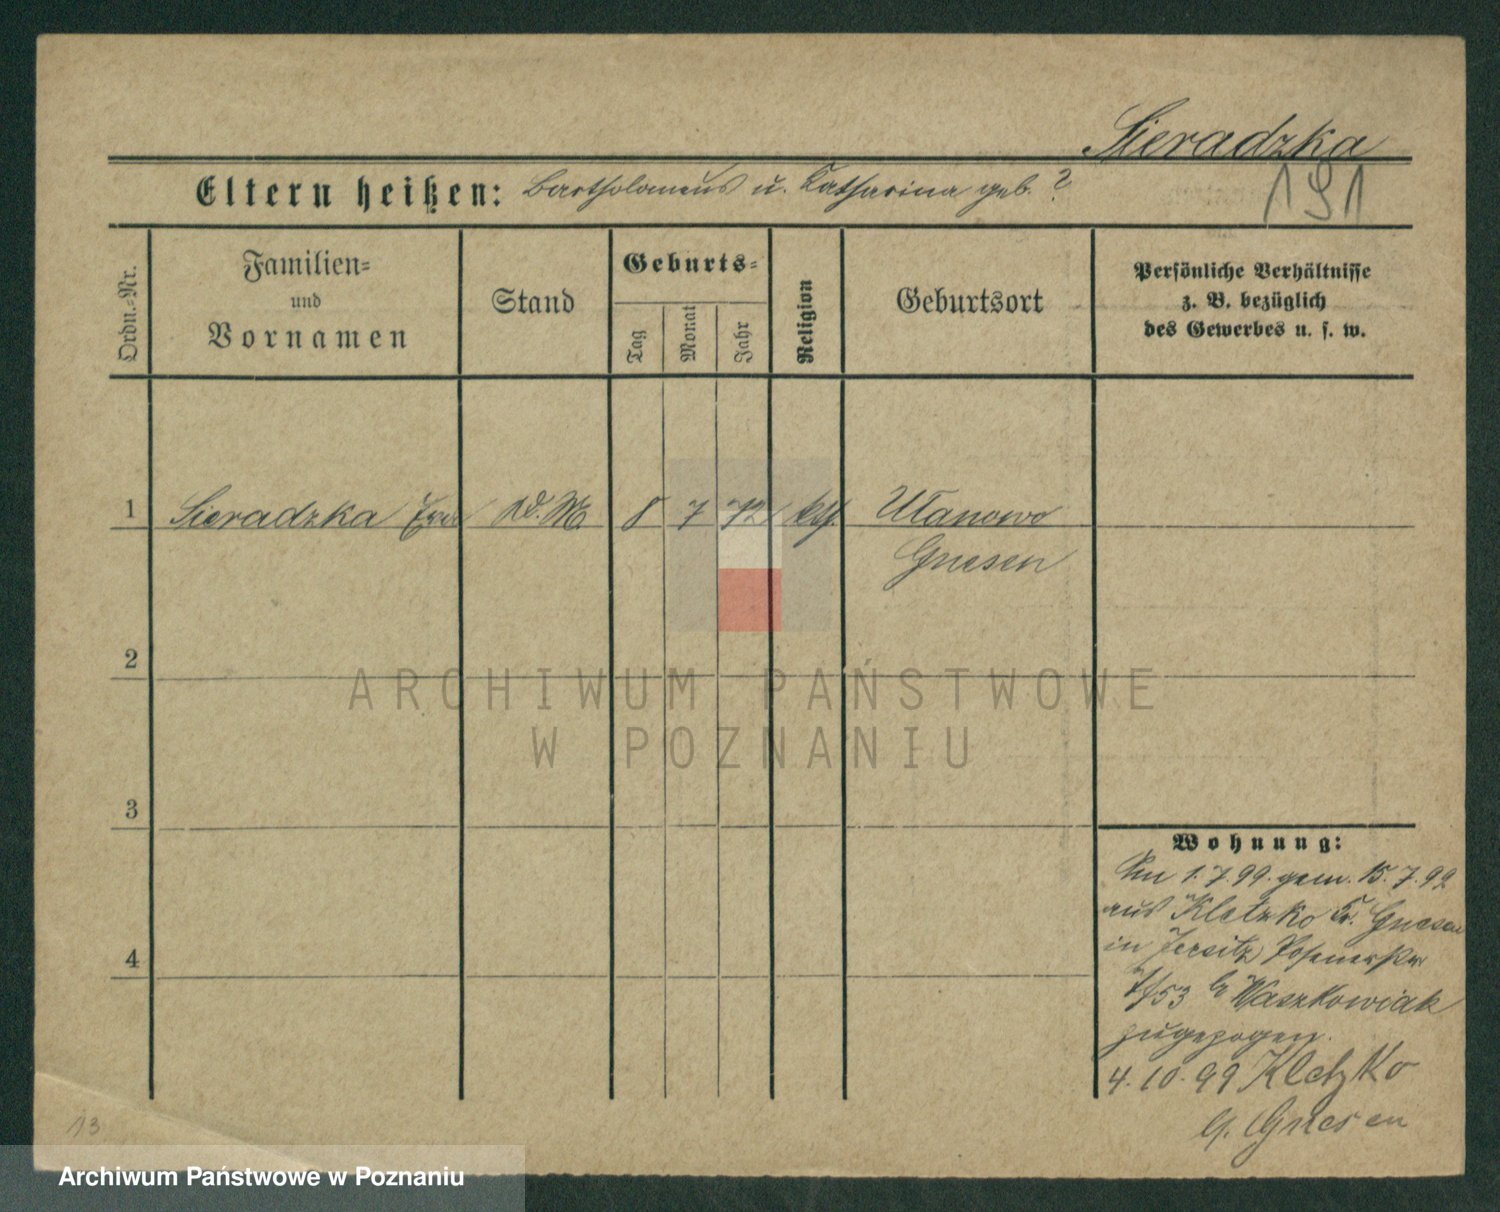 Sieradzka
Eltern heißen: Bartholomeus u. Katharina geb. ?
191
Ordn.-Nr.
Familien-
und
Vornamen
Stand
Geburts-
Tag
Monat
Jahr
Religion
Geburtsort
Persönliche Verhältnisse
z. B. bezüglich
des Gewerbes u. s. w.
1 Sieradzka D. M. 8 7 72 kth. Ułanowo
Gnesen
2
ARCHIWUM PAŃSTWOWE
W POZNANIU
3
Wohnung:
Am 1.7.99. gem. 15.7.99
aus Kletzko Kr. Gnesen
4
in Jersitz Posenerstr
53 b Waszkowiak
zugezogen.
4.10.99 Kletzko
Gnesen
13
Archiwum Państwowe w Poznaniu